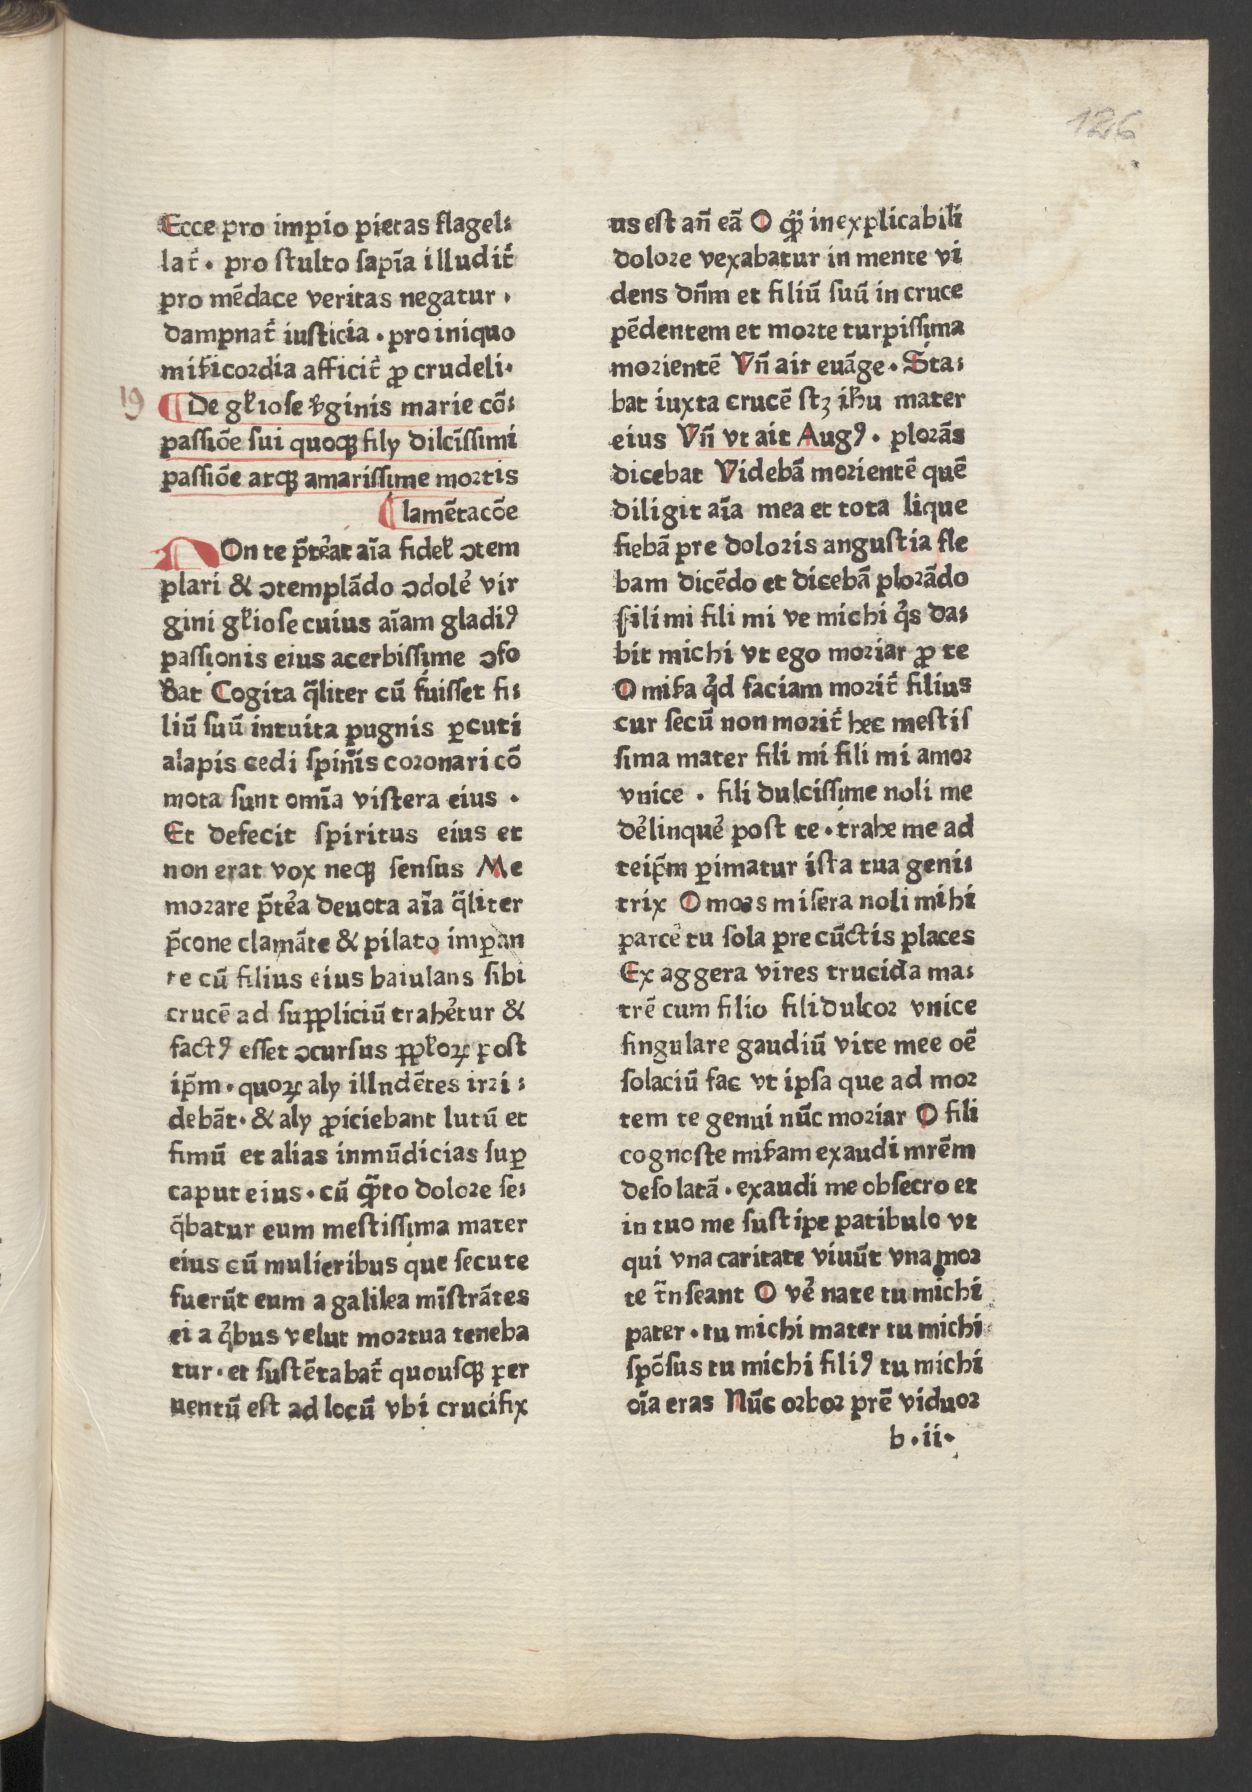 126
Ecce pro impio pietas flagel⸗
lat᷑ · pro stulto sapīa illudit᷑
pro mēdace veritas negatur ·
dampnat᷑ iusticia · pro iniquo
mīẜicordia afficit᷑ ꝓ crudeli ·
19
¶ De gl̄iose v̄ginis marie cō⸗
passiōe sui quoqꝫ fily dilcīssimi
passiōe atqꝫ amarissime mortis
¶ lamētacōe
NOn te p̄te᷑at aīa fidel̕ ↄtem
plari & ↄtemplādo ↄdole᷑ vir
gini gl̄iose cuius aīam gladiꝰ
passionis eius acerbissime ↄfo
dat Cogita q̄liter cū fuisset fi⸗
liū suū intuita pugnis ꝑcuti
alapis cedi spinīs coronari cō
mota sunt omīa vistera eius ·
Et defecit spiritus eius et
non erat vox neqꝫ sensus Me
morare p̄te᷑a deuota aīa q̄liter
p̄cone clamāte & pilato imꝑan
te cū filius eius baiulans sibi
crucē ad suppliciū trahe᷑tur &
factꝰ esset ↄcursus ppl̄oꝝ post
ip̄m · quoꝝ aly illndētes irri⸗
debāt · & aly ꝓiciebant lutū et
fimū et alias inmūdicias suꝑ
caput eius · cū qᷓto dolore se⸗
q̄batur eum mestissima mater
eius cū mulieribus que secute
fuerūt eum a galilea mīstrātes
ei a q̇bus velut mortua teneba
tur · et sustētabat᷑ quousqꝫ per
uentū est ad locū vbi crucifix
us est an̄ eā O qᷓ inexplicabili
dolore vexabatur in mente vi
dens dn̄m et filiū suū in cruce
pēdentem et morte turpissima
morientē Vn̄ ait euāge · Sta⸗
bat iuxta crucē stꝫ ih̄u mater
eius Vn̄ vt ait Augꝰ · plorās
dicebat Videbā morientē quē
diligit aīa mea et tota lique
fiebā pre doloris angustia fle
bam dicēdo et dicebā plorādo
fili mi fili mi ve michi q̇s da⸗
bit michi vt ego moriar ꝓ te
O miẜa q̇d faciam morit᷑ filius
cur secū non morit᷑ hec mestis
sima mater fili mi fili mi amor
vnice · fili dulcissime noli me
de᷑linque᷑ post te · trahe me ad
teip̄m ꝑimatur ista tua geni⸗
trix O mors misera noli mihi
parce᷑ tu sola pre cūctis places
Ex aggera vires trucida ma⸗
trē cum filio fili dulcor vnice
singulare gaudiū vite mee oē
solaciū fac vt ipsa que ad mor
tem te genui nūc moriar O fili
cognoste miẜam exaudi mrēm
desolatā · exaudi me obsecro et
in tuo me sustipe patibulo vt
qui vna caritate viuūt vna mor
te tn̄seant O ve᷑ nate tu michi
pater · tu michi mater tu michi
spōsus tu michi filiꝰ tu michi
oīa eras Nūc orbor prē viduor
b · ii ·